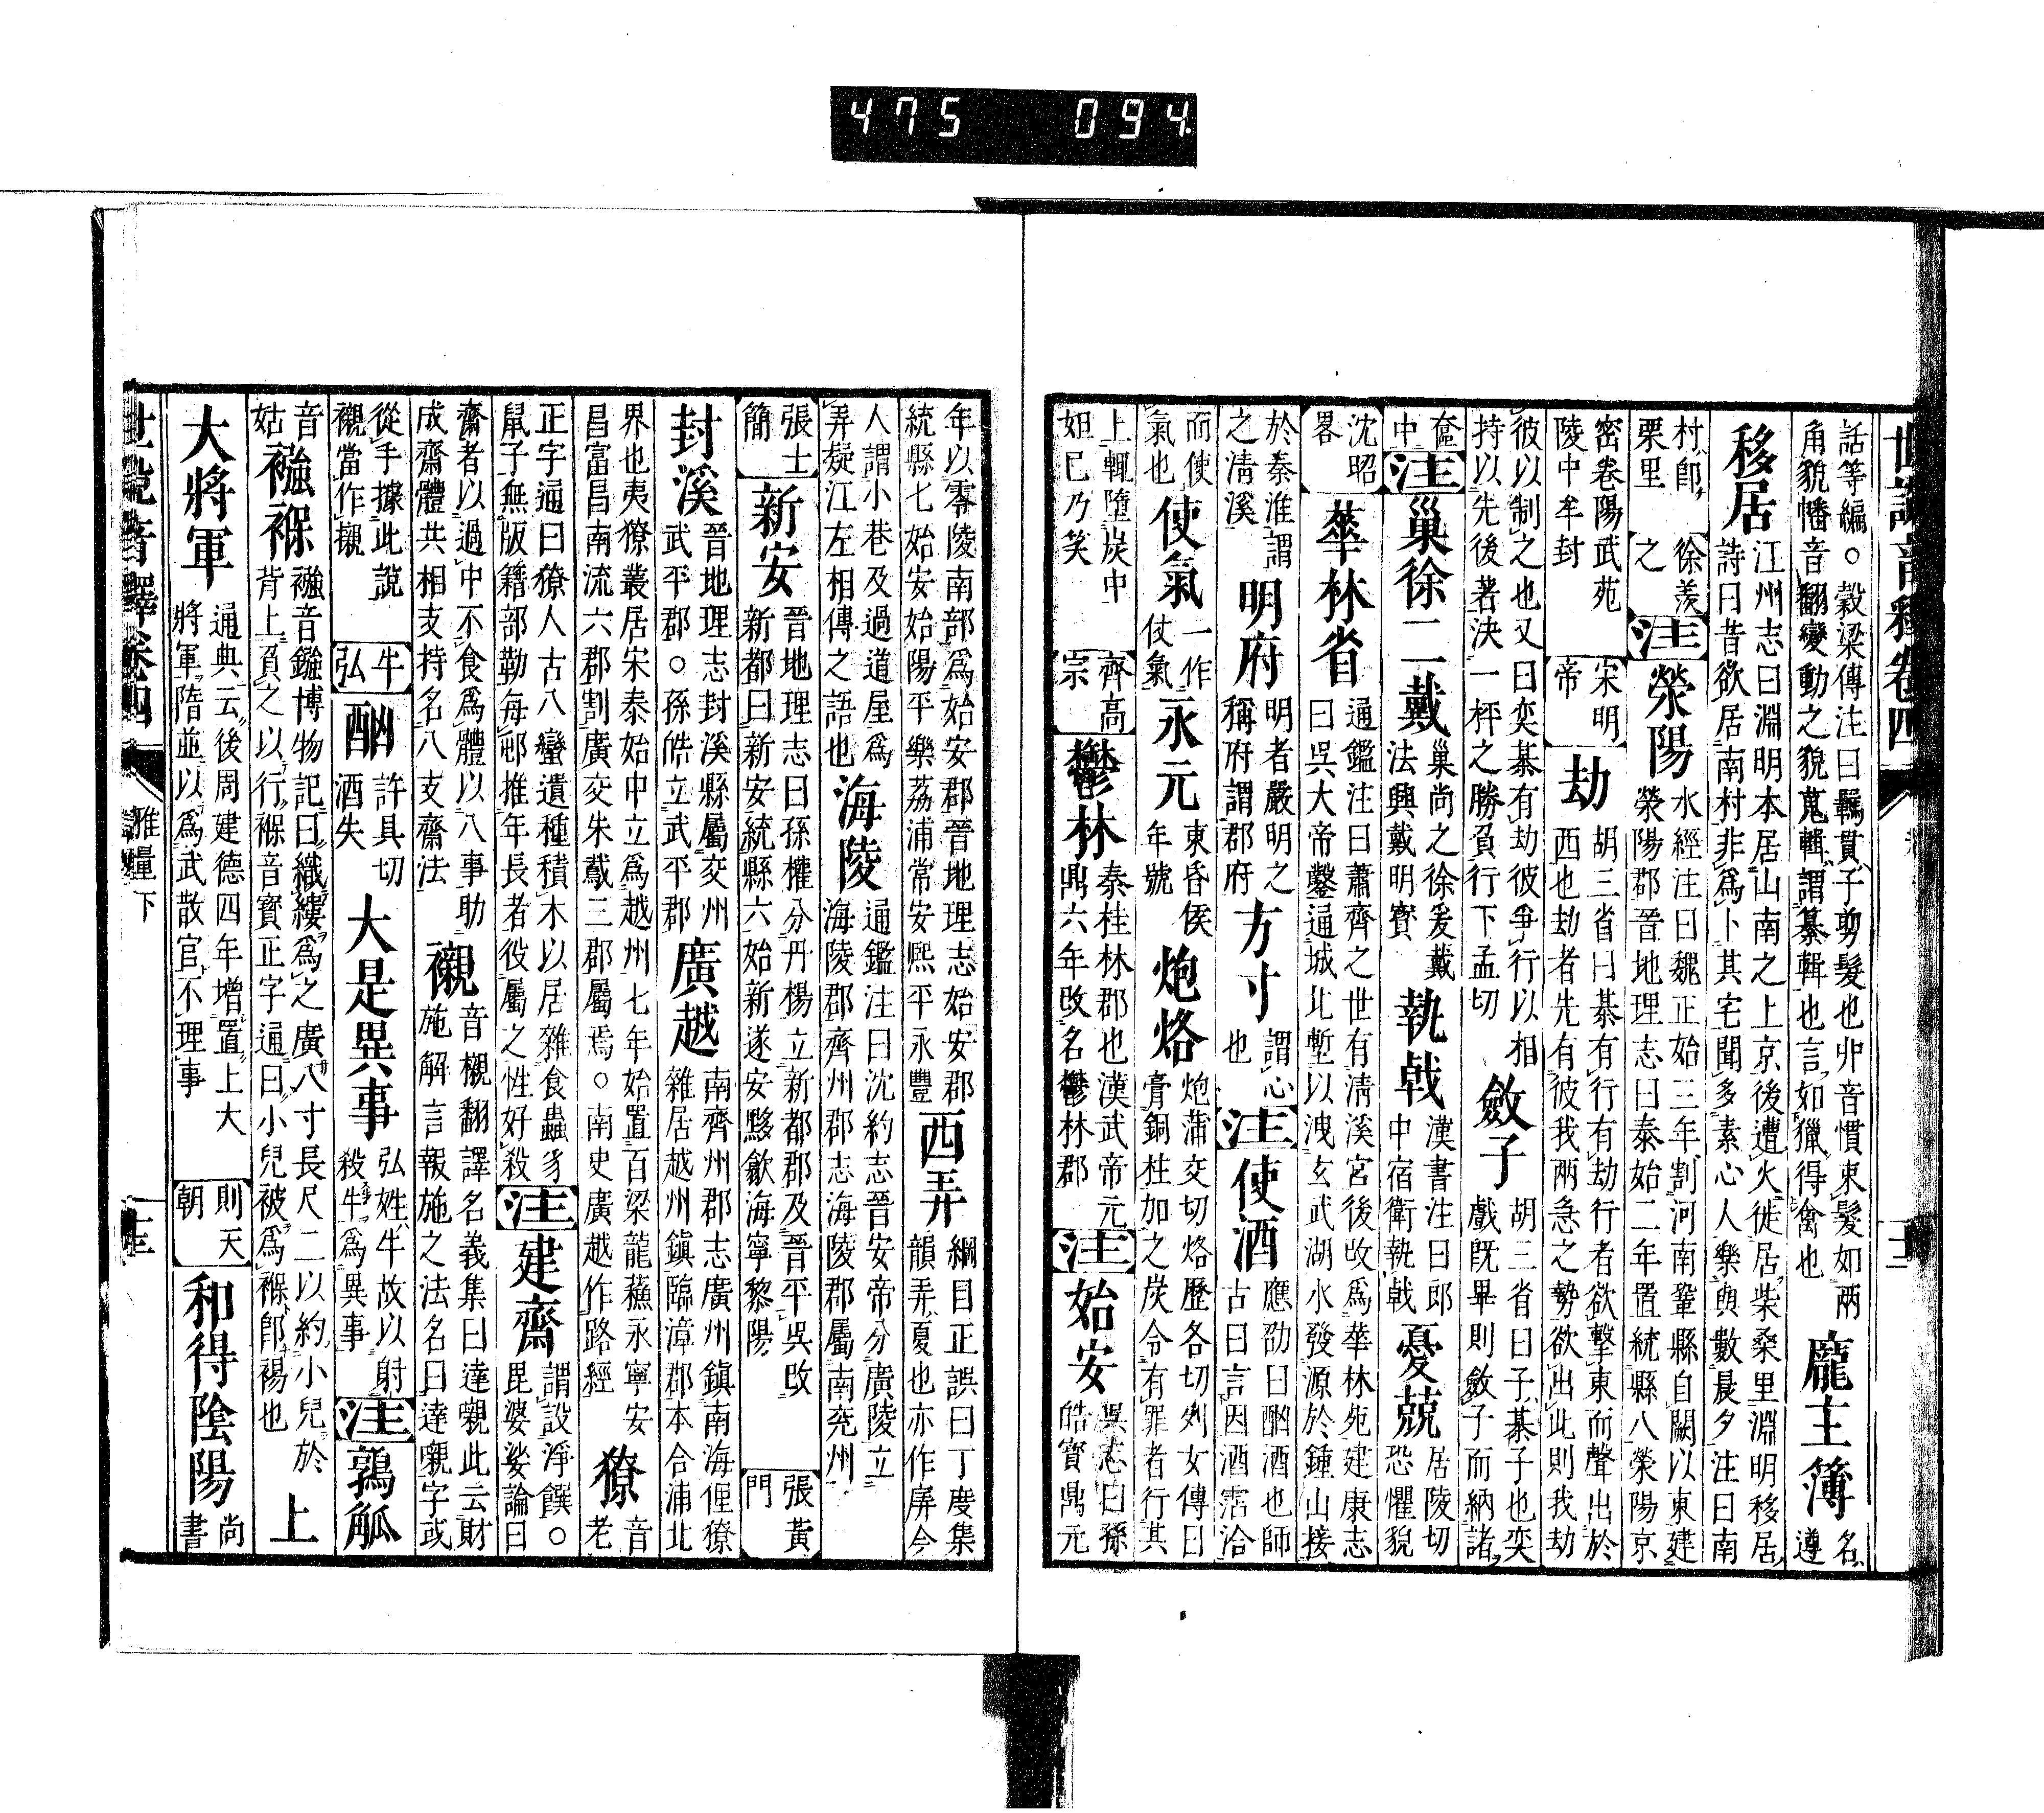 475 094.
世說音釋卷四
話等編○穀梁傳注曰羈貫子剪髮也丱音慣束髮如兩
角貌幡音翻變動之貌蒐輯謂纂輯也言如獵得禽也
龐主簿
名
遵
移居
江州志曰淵明本居山南之上京後遭火徙居柴桑里淵明移居
詩曰昔欲居南村非為卜其宅聞多素心人樂與數晨夕注曰南
村卽
栗里
徐羨
之
注
滎陽
水經注曰魏正始三年割河南鞏縣自闕以東建
滎陽郡晉地理志曰泰始二年置統縣八滎陽京
密卷陽武苑
陵中牟封
宋明
帝
劫
胡三省曰棊有行有劫行者欲擊東而聲出於
西也劫者先有彼我兩急之勢欲出此則我劫
彼以制之也又曰奕棊有劫彼爭行以相
持以先後著決一枰之勝負行下孟切
斂子
胡三省曰子棊子也奕
戲旣畢則斂子而納諸
奩
中
注
巢徐二戴
巢尚之徐爰戴
法興戴明寳
執戟
漢書注曰郎
中宿衛執戟
憂兢
居陵切
恐懼貌
沈昭
畧
華林省
通鑑注曰蕭齊之世有淸溪宮後改為華林苑建康志
曰吳大帝鑿通城北塹以洩玄武湖水發源於鍾山接
於秦淮謂
之淸溪
明府
明者嚴明之
稱府謂郡府
方寸
謂心
也
注
使酒
應劭曰酗酒也師
古曰言因酒霑洽
而使
氣也
使氣
一作
仗氣
永元
東昏侯
年號
炮烙
炮蒲交切烙歷各切列女傳曰
膏銅柱加之炭令有罪者行其
上輒墮炭中
妲己乃笑
齊高
宗
鬱林
秦桂林郡也漢武帝元
鼎六年改名鬱林郡
注
始安
吳志曰孫
皓寳鼎元
年以零陵南部為始安郡晉地理志始安郡
統縣七始安始陽平樂荔浦常安熙平永豐
西弄
綱目正誤曰丁度集
韻弄夏也亦作㢙今
人謂小巷及過道屋為
弄疑江左相傳之語也
海陵
通鑑注曰沈約志晉安帝分廣陵立
海陵郡齊州郡志海陵郡屬南兗州
張士
簡
新安
晉地理志曰孫權分丹楊立新都郡及晉平吳改
新都曰新安統縣六始新遂安黟歙海寧黎陽
張黃
門
封溪
晉地理志封溪縣屬交州
武平郡○孫皓立武平郡
廣越
南齊州郡志廣州鎮南海俚獠
雜居越州鎮臨漳郡本合浦北
界也夷獠叢居宋泰始中立為越州七年始置百梁龍蘇永寧安
昌富昌南流六郡割廣交朱鳶三郡屬焉○南史廣越作路經
獠
音
老
正字通曰獠人古八蠻遺種積木以居雜食蟲豸
鼠子無版籍部勒每郡推年長者役屬之性好殺
注
建齋
謂設淨饌○
毘婆娑論曰
齋者以過中不食為體以八事助
成齋體共相支持名八支齋法
襯
音櫬翻譯名義集曰達嚫此云財
施解言報施之法名曰達嚫字或
從手據此說
襯當作䞋
牛
弘
酗
許具切
酒失
大是異事
弘姓牛故以射
殺牛為異事
注
鶉觚
音
姑
襁褓
襁音鏹博物記曰織縷為之廣八寸長尺二以約小兒於
背上負之以行褓音寳正字通曰小兒被為褓卽裼也
上
大將軍
通典云後周建德四年增置上大
將軍隋並以為武散官不理事
則天
朝
和得陰陽
尚
書
世說音釋卷四
雅量下
十三